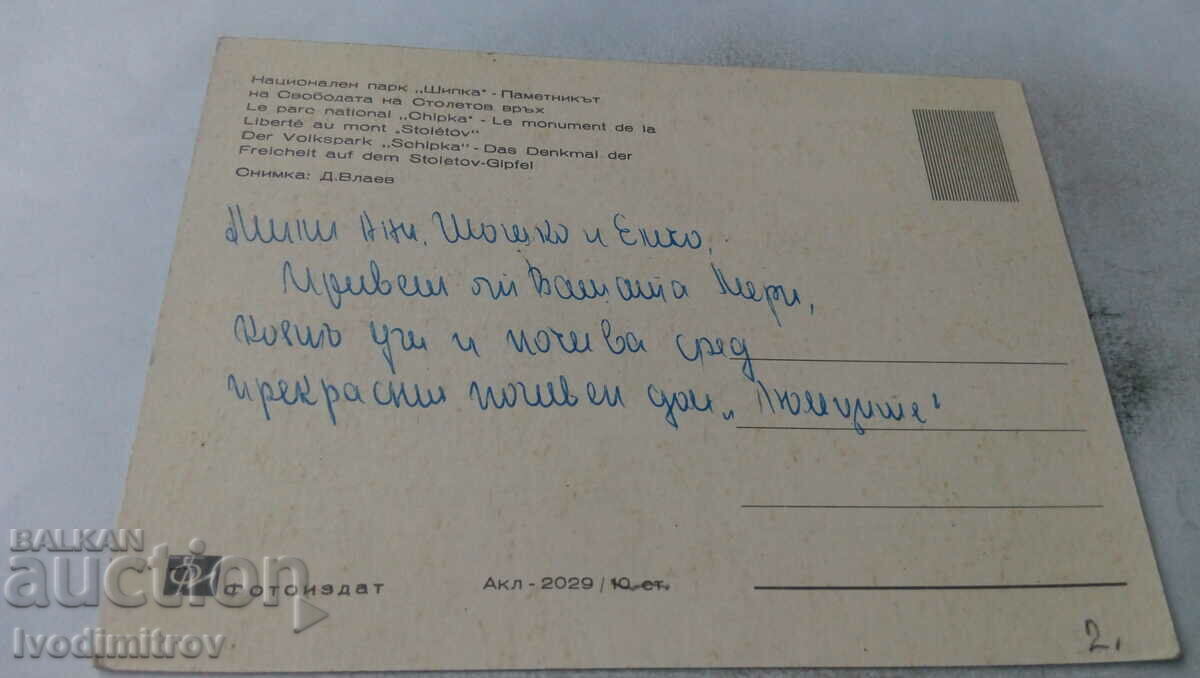 Национален парк „Шипка" - Паметникът
на Свободата на Столетов връх
Le parc national „Chipka" - Le monument de la
Liberté au mont „Stolétov"
Der Volkspark „Schipka" - Das Denkmal der
Freicheit auf dem Stoletov-Gipfel
Снимка: Д.Влаев
Мили Ани, Шошко и Енко,
Привет от Вашата Мери,
която учи и почива сред
прекрасния почивен дом „
BALKAN
auction
Фотоиздат
Акл - 2029 / 10. ст.
Ivodimitrov
2.